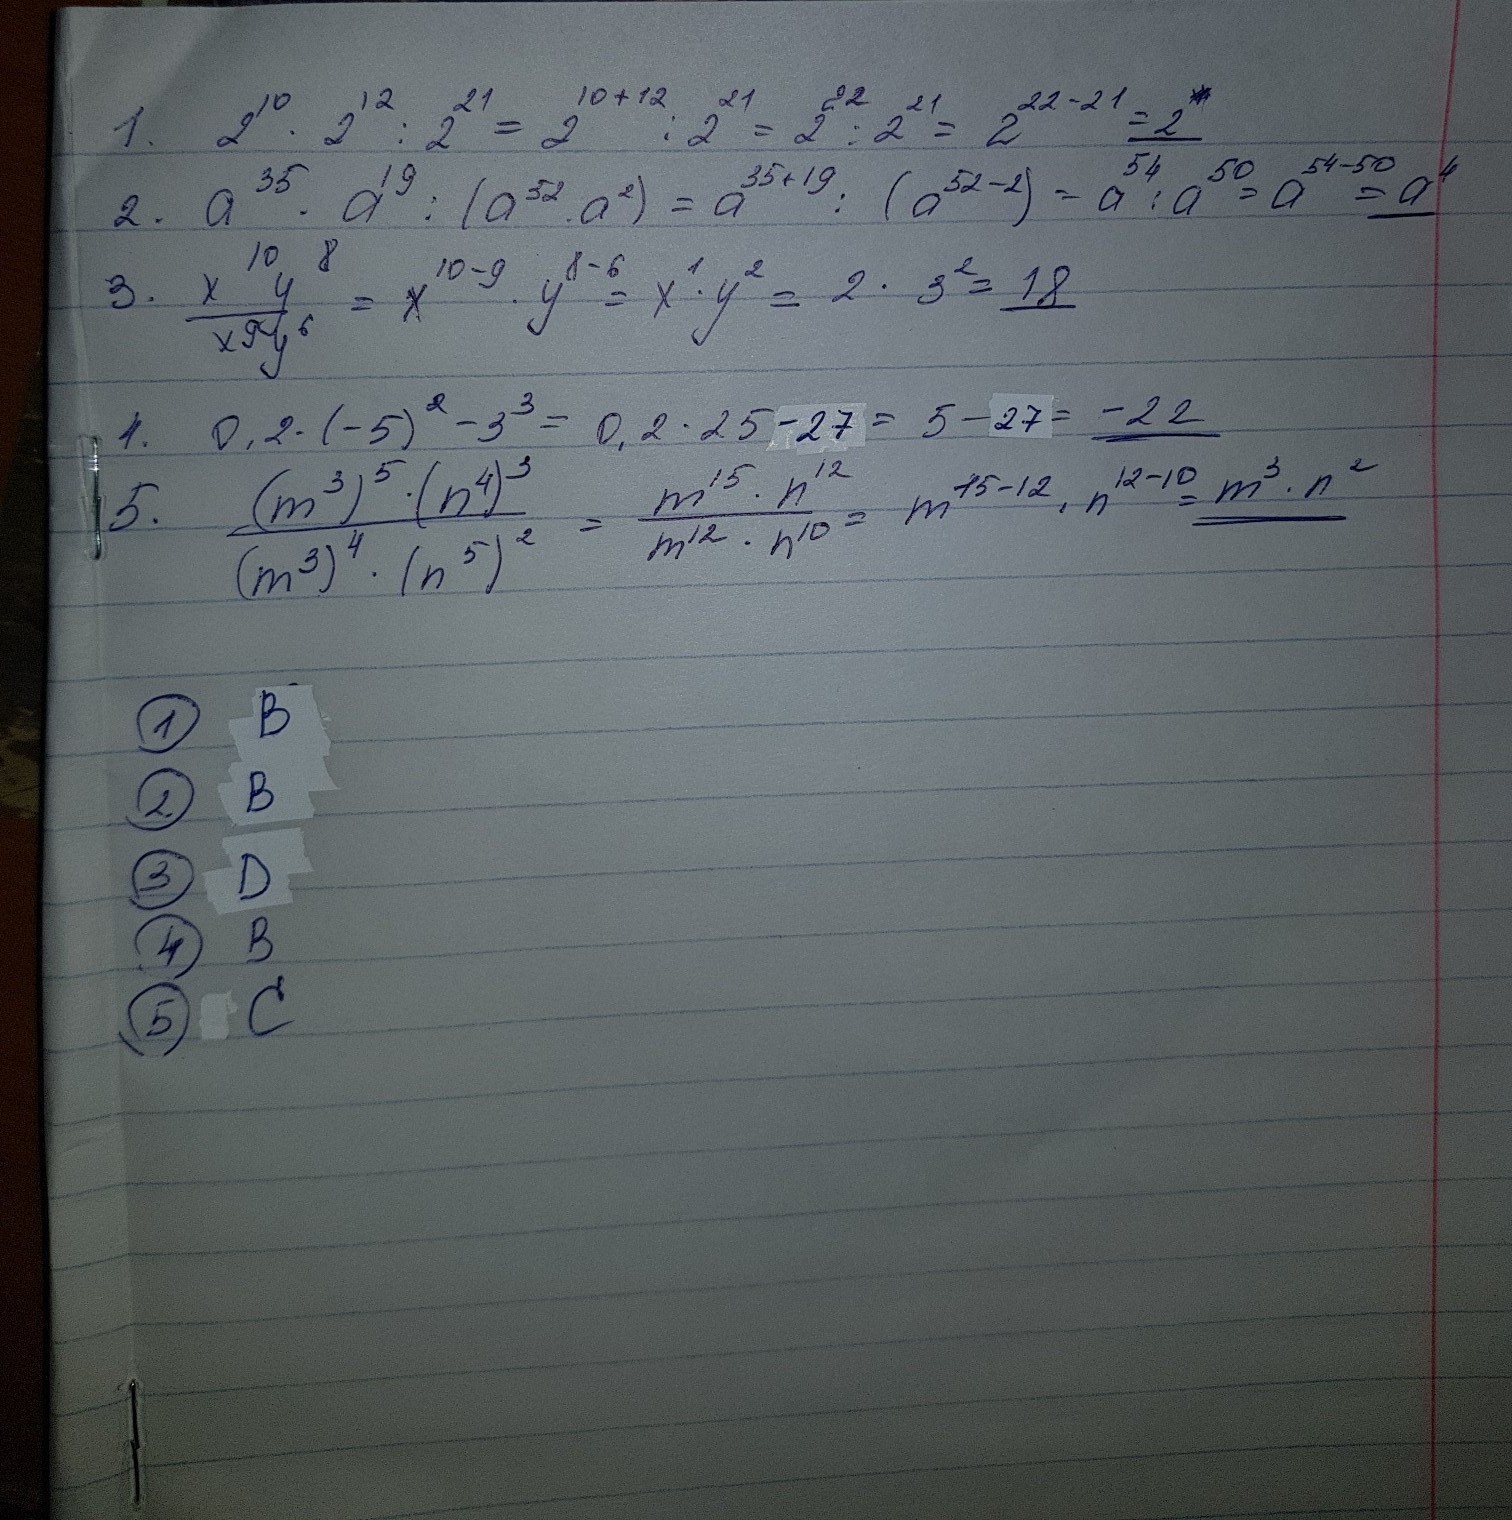 1. 2^10 · 2^12 : 2^21 = 2^10+12 : 2^21 = 2^22 : 2^21 = 2^22-21 = 2
2. a^35 · a^19 : (a^52 · a^2) = a^35+19 : (a^52-2) - a^54 : a^50 = a^54-50 = a^4
3. x^10 y^8 / x^9 y^6 = x^10-9 · y^8-6 = x^1 · y^2 = 2 · 3^2 = 18
4. 0,2 · (-5)^2 - 3^3 = 0,2 · 25 - 27 = 5 - 27 = -22
5. (m^3)^5 · (n^4)^3 / (m^3)^4 · (n^5)^2 = m^15 · n^12 / m^12 · n^10 = m^15-12 · n^12-10 = m^3 · n^2
1 B
2 B
3 D
4 B
5 C